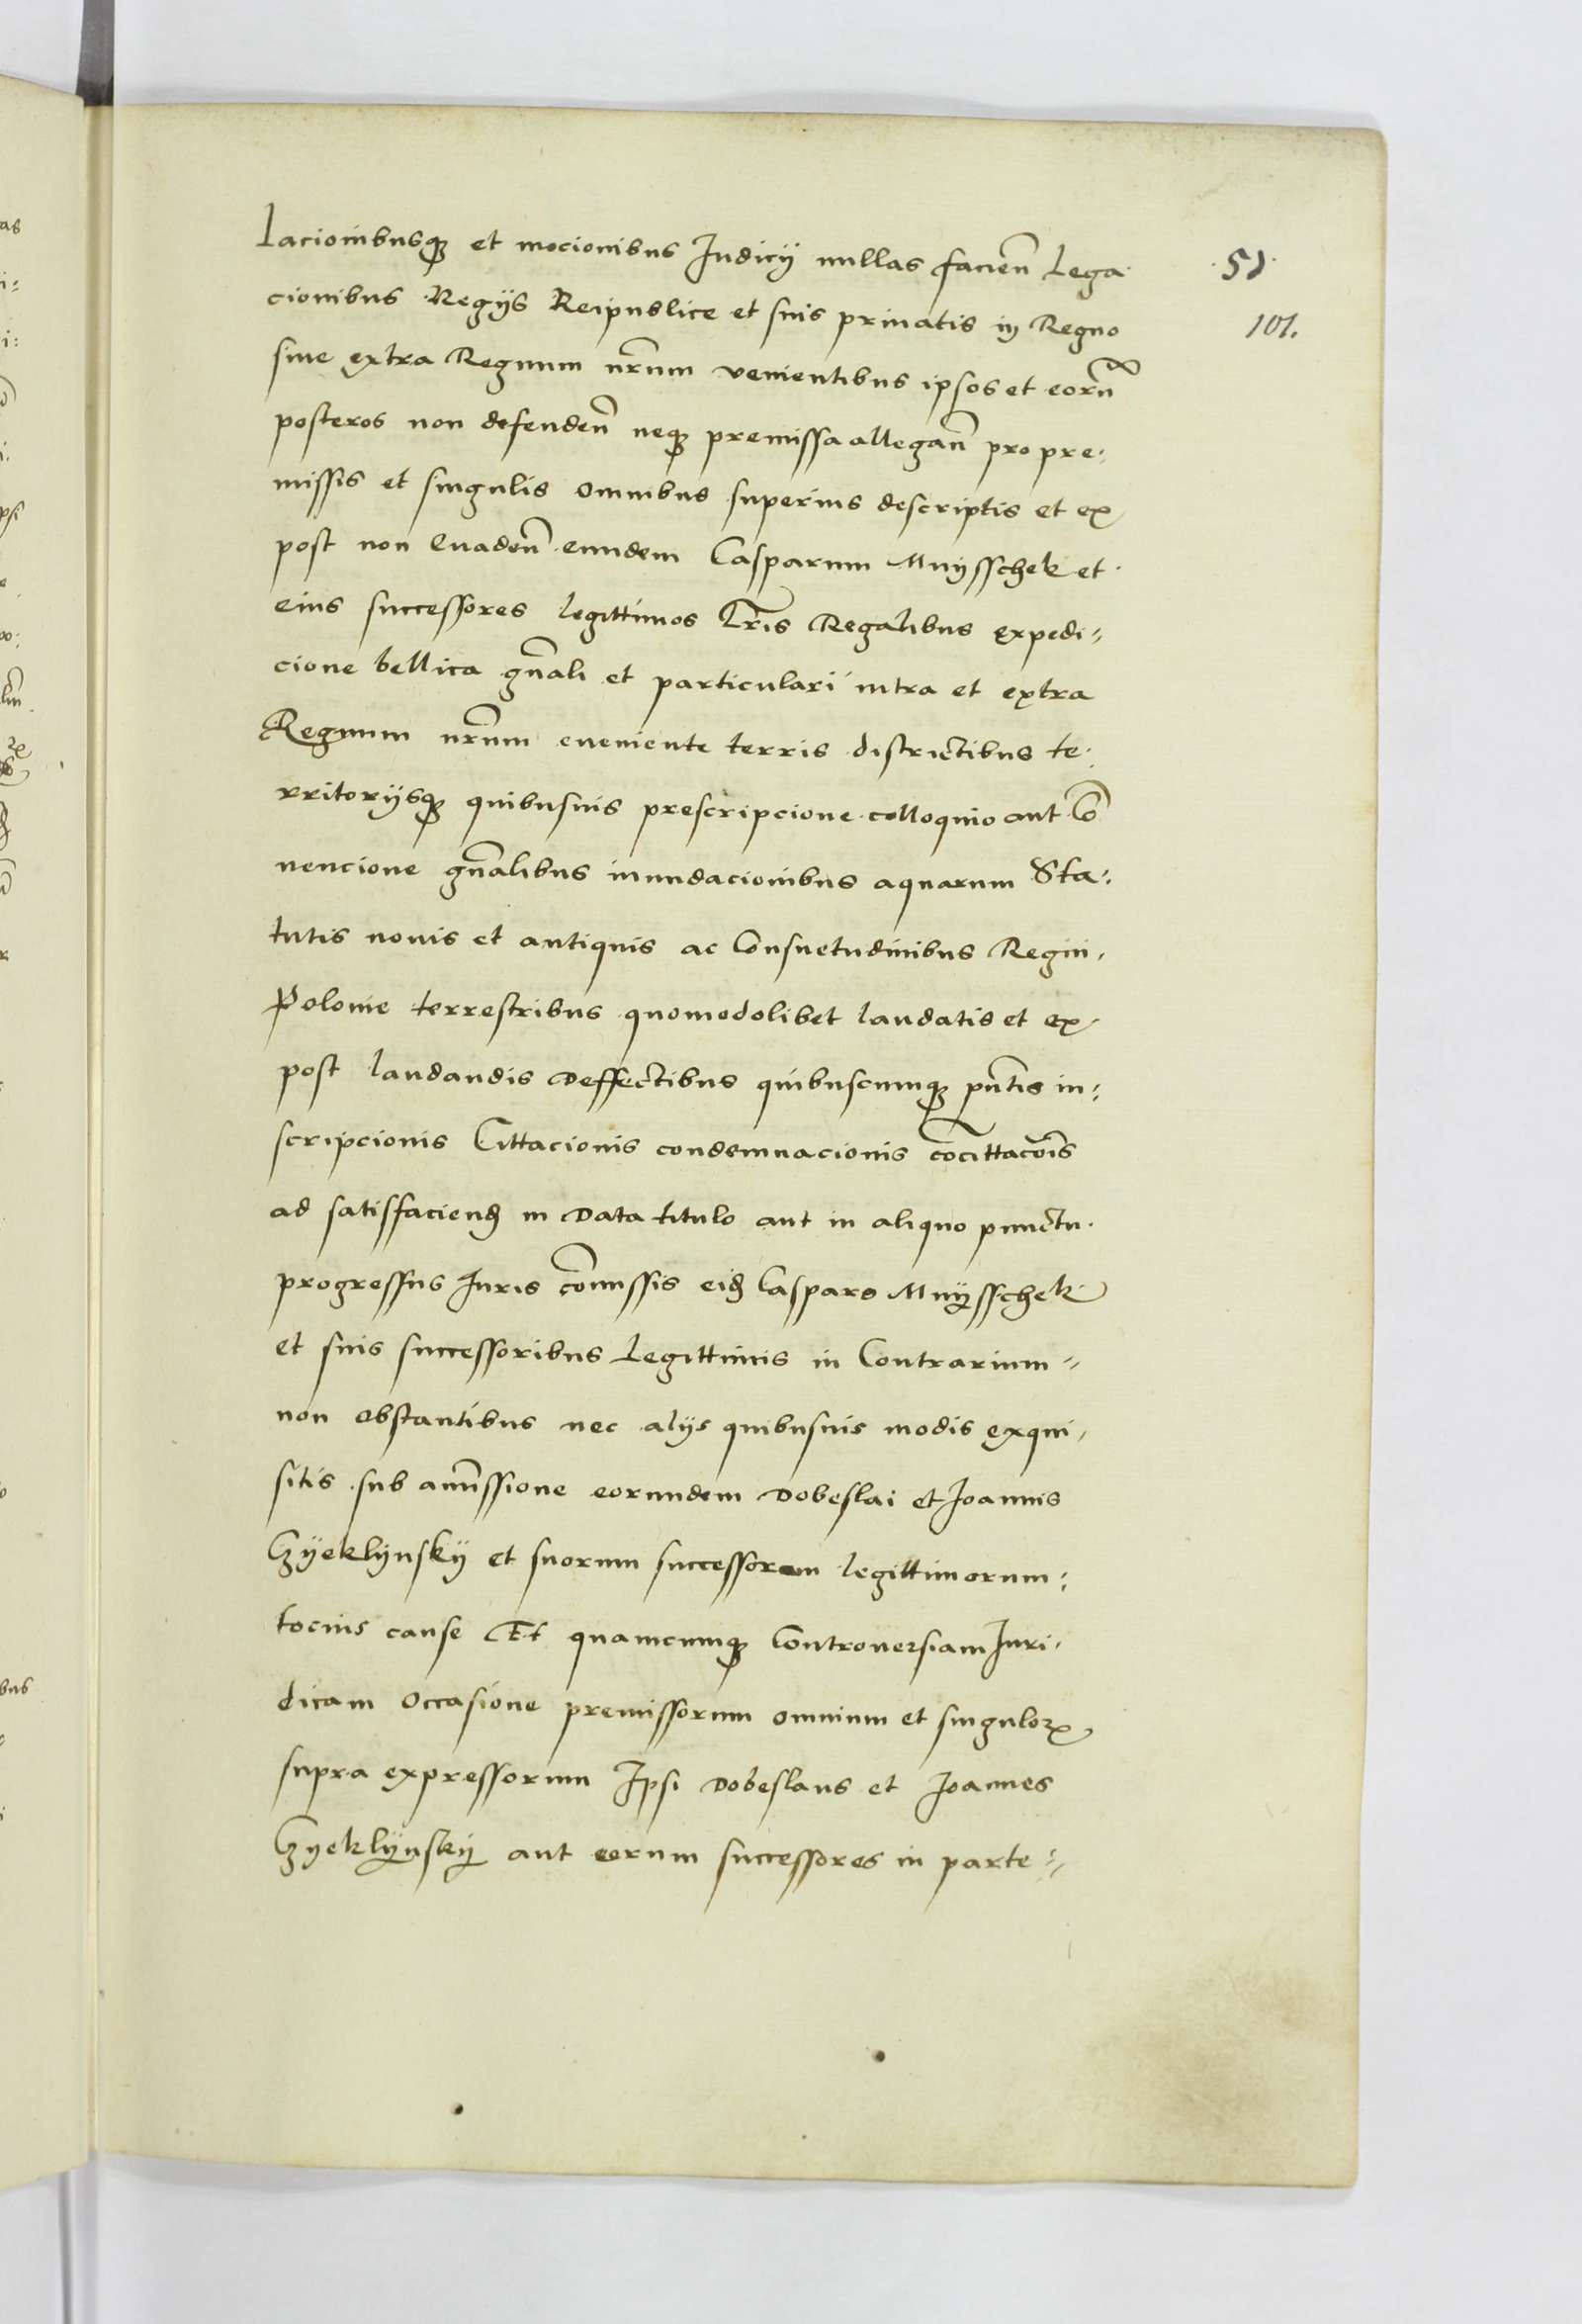 lacionibusqꝫ et mocionibus Judicij nullas facieñ Lega
51
cionibus Regijs Reipublice et suis priuatis in Regno
101.
siue extra Regnum nr̃um venientibus ipsos et eorũ
posteros non defendeñ neqꝫ premissa allegañ pro pre:
missis et singulis omnibus superius descriptis et ex
post non Euadeñ eundem Casparum Muÿsschek et
eius successores legittimos Lr̃is Regalibus expedi:
cione bellica gñali et particulari intra et extra
Regnum nr̃um eueniente terris districtibus te:
rritorijsqꝫ quibusuis prescripcione colloquio aut Cõ
uencione gñalibus inundacionibus aquarum Sta:
tutis nouis et antiquis ac Consuetudinibus Regni
Polonie terrestribus quomodolibet laudatis et ex
post laudandis Deffectibus quibuscumqꝫ pñtis in:
scripcionis Cittacionis condemnacionis cõcittacõis
ad satisfaciendꝫ in Data titulo aut in aliquo punctu
progressus Juris cõmissis eidꝫ Casparo Muÿsschek
et suis successoribus Legittimis in Contrarium
non obstantibus nec alijs quibusuis modis exqui
sitis sub amĩssione eorundem Dobeslai et Joannis
Czÿeklÿnskÿ et suorum successorum legittimorum:
tocius cause Et quamcumqꝫ Controuersiam Juri
dicam Occasione premissorum omnium et singuloꝝ
supra expressorum Ipsi Dobeslaus et Joannes
Czyeklÿnskÿ aut eorum successores in parte